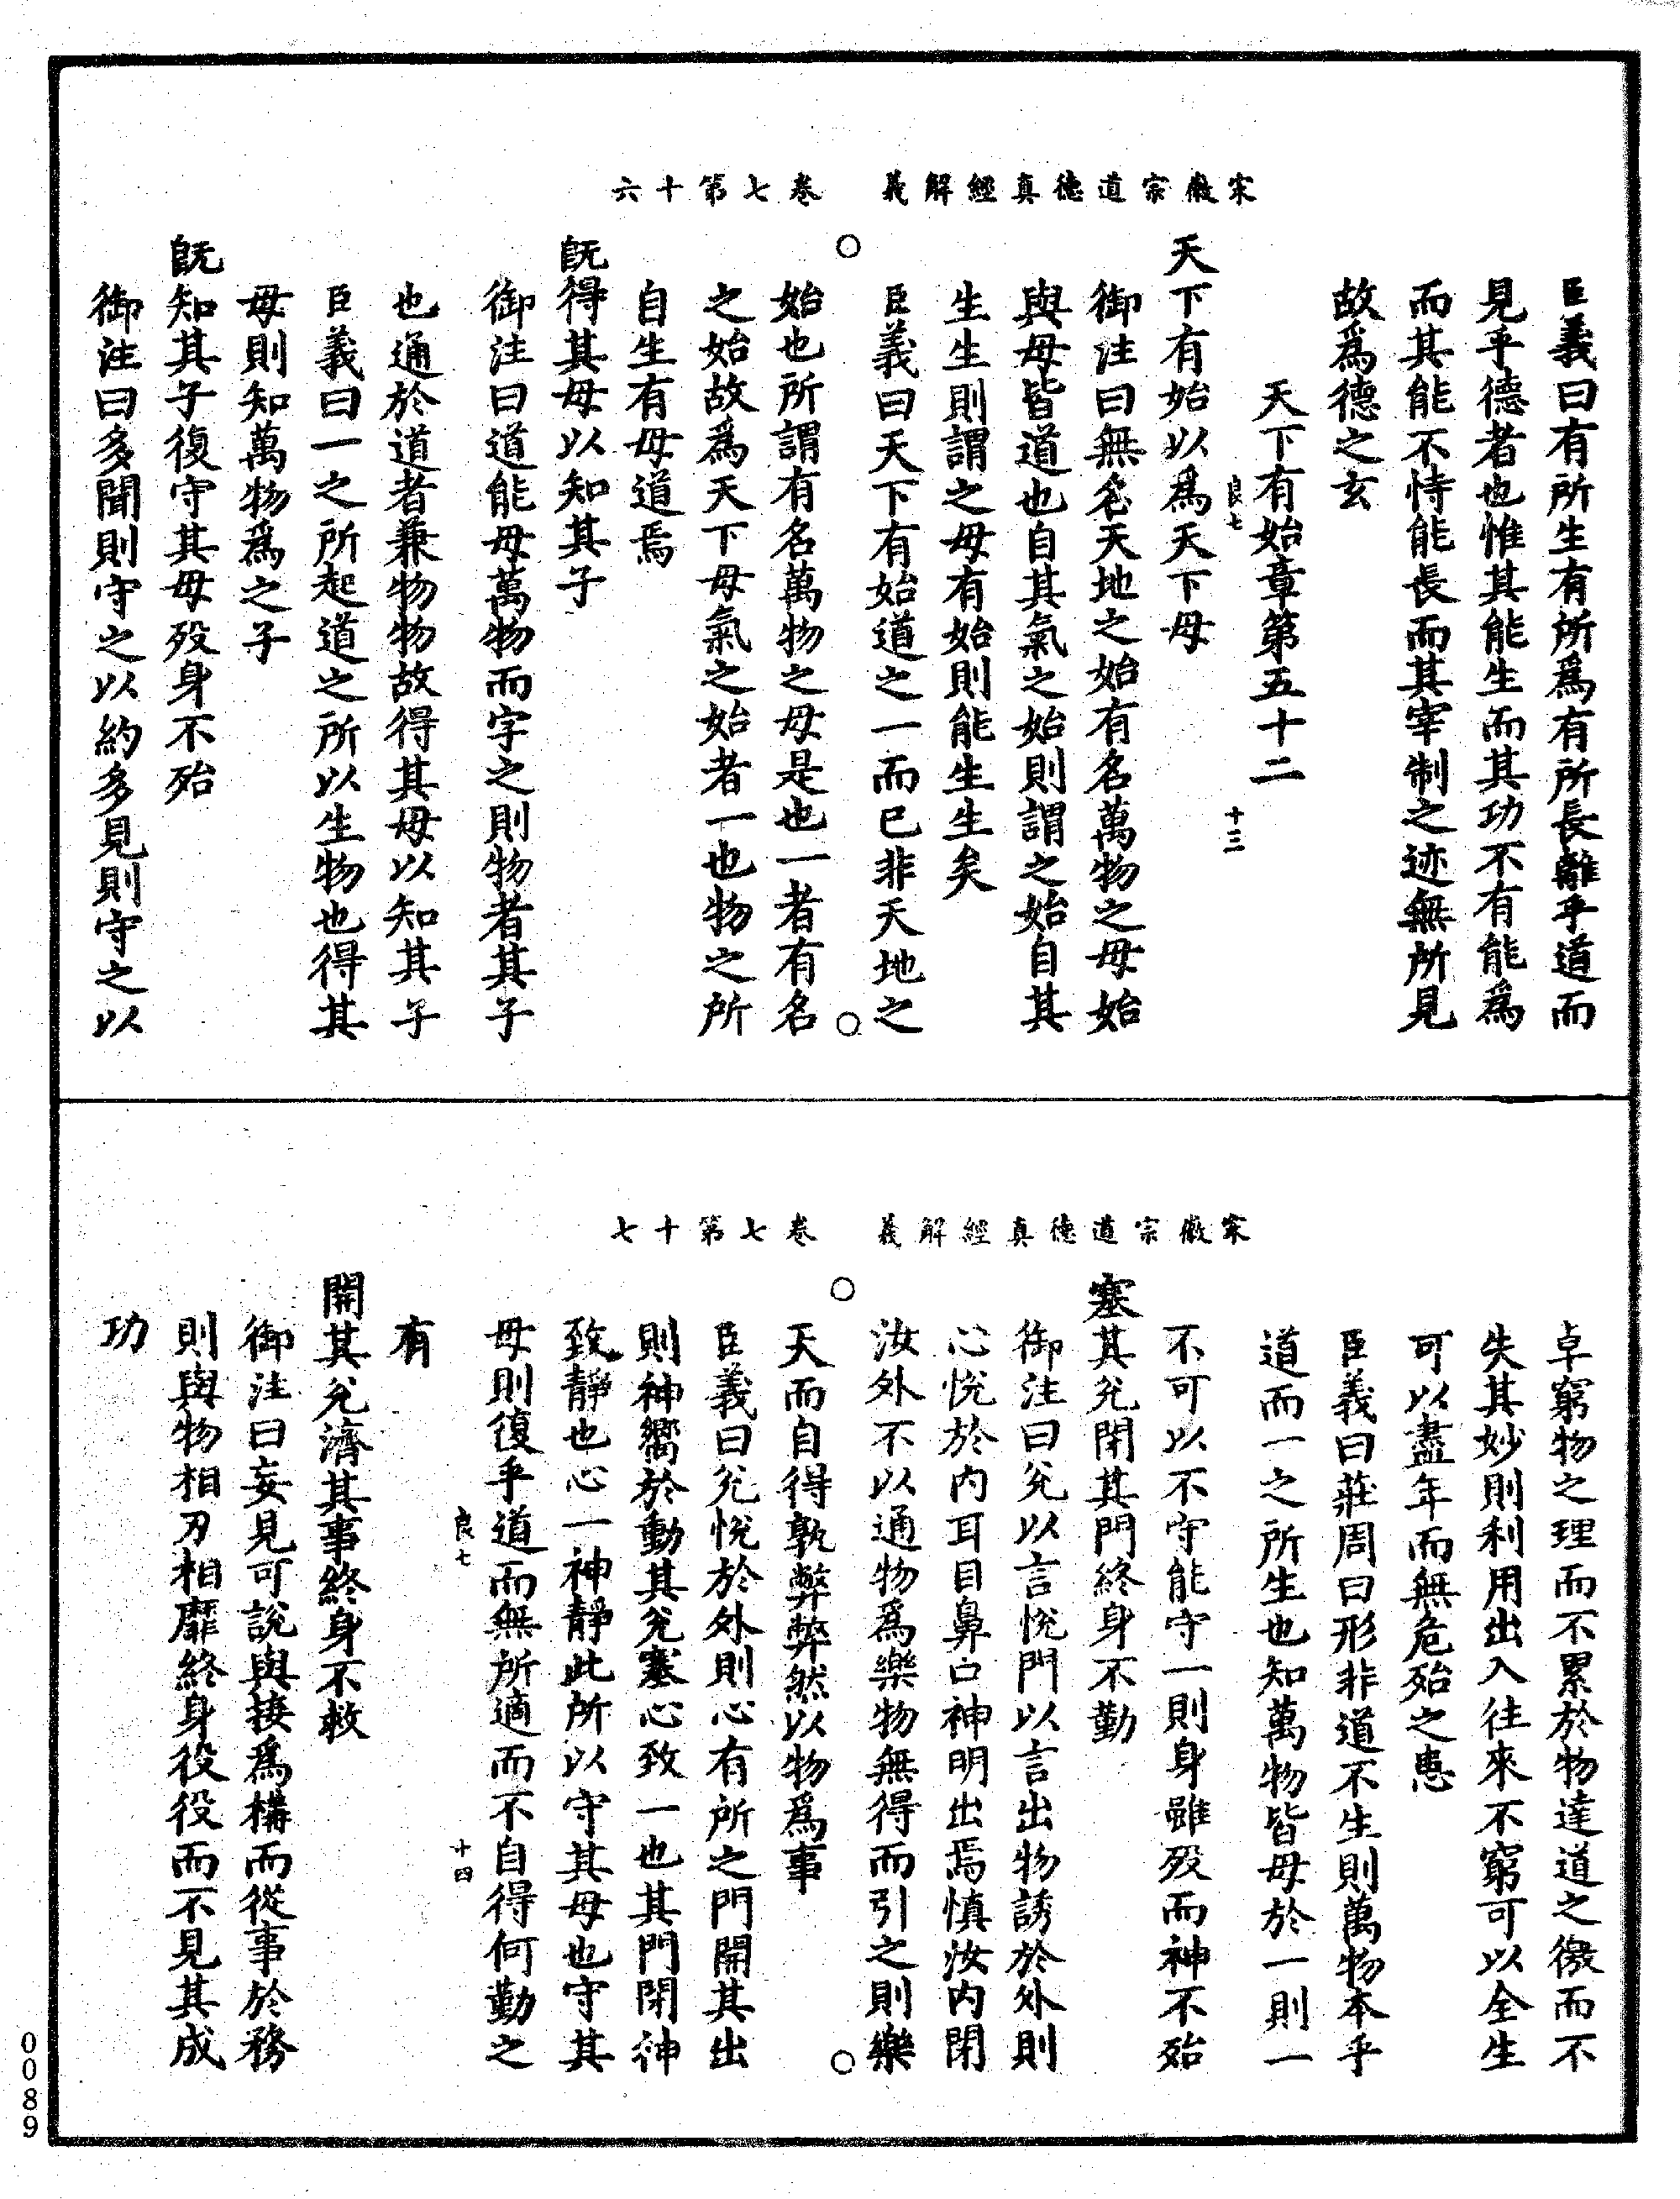 宋徽宗道德真經解義　卷七第十六
臣義曰有所生有所爲有所長離乎道而
見乎德者也惟其能生而其功不有能爲
而其能不恃能長而其宰制之迹無所見
故爲德之玄
天下有始章第五十二
良七　十三
天下有始以爲天下母
御注曰無名天地之始有名萬物之母始
與母皆道也自其氣之始則謂之始自其
生生則謂之母有始則能生生矣
臣義曰天下有始道之一而已非天地之
始也所謂有名萬物之母是也一者有名
之始故爲天下母氣之始者一也物之所
自生有母道焉
旣得其母以知其子
御注曰道能母萬物而字之則物者其子
也通於道者兼物物故得其母以知其子
臣義曰一之所起道之所以生物也得其
母則知萬物爲之子
旣知其子復守其母殁身不殆
御注曰多聞則守之以約多見則守之以
宋徽宗道德真經解義　卷七第十七
卓窮物之理而不累於物達道之徼而不
失其妙則利用出入往來不窮可以全生
可以盡年而無危殆之患
臣義曰莊周曰形非道不生則萬物本乎
道而一之所生也知萬物皆母於一則一
不可以不守能守一則身雖殁而神不殆
塞其兊閉其門終身不勤
御注曰兊以言悅門以言出物誘於外則
心悅於内耳目鼻口神明出焉慎汝内閉
汝外不以通物爲樂物無得而引之則樂
天而自得孰弊弊然以物爲事
臣義曰兊悅於外則心有所之門開其出
則神嚮於動其兊塞心致一也其門閉神
致靜也心一神靜此所以守其母也守其
母則復乎道而無所適而不自得何勤之
良七　十四
有
開其兊濟其事終身不救
御注曰妄見可說與接爲構而從事於務
則與物相刃相靡終身役役而不見其成
功
0089